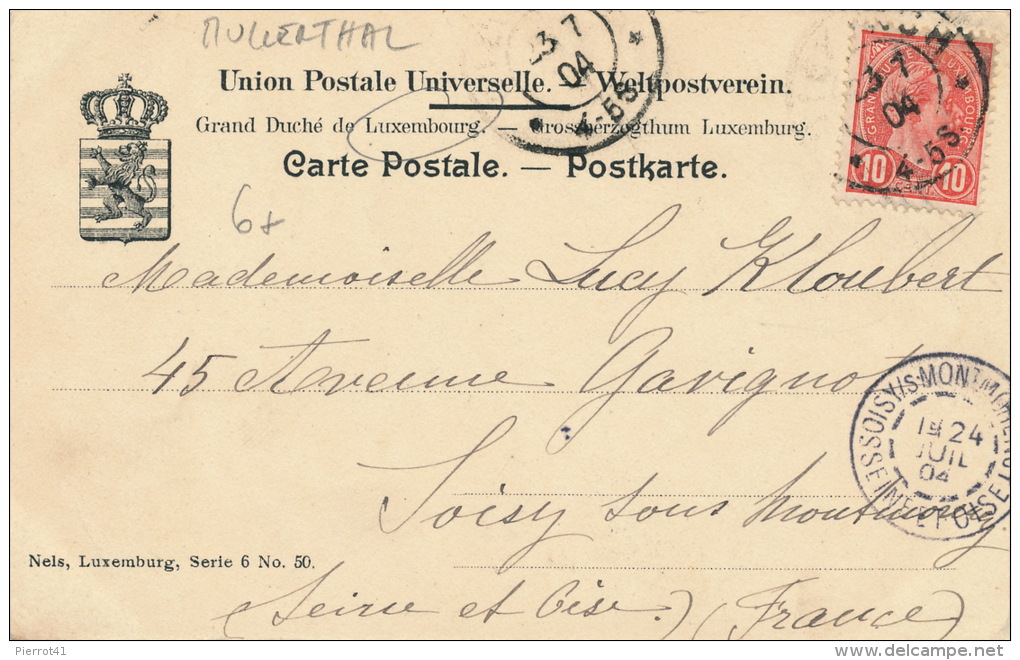 MULLERTHAL
Union Postale Universelle. Weltpostverein.
Grand Duché de Luxembourg. — Grossherzogthum Luxemburg.
Carte Postale. — Postkarte.
6+
3 7
04
4-5S
3 7
04
4-5S
10 10
Mademoiselle Lucy Kloubert
45 Avenue Gavignot
SOISY/S-MONTMORENCY
SEINE ET OISE
1E 24
JUIL
04
Soisy sous Montmorency
Nels, Luxemburg, Serie 6 No. 50.
(Seine et Oise) (France)
Pierrot41